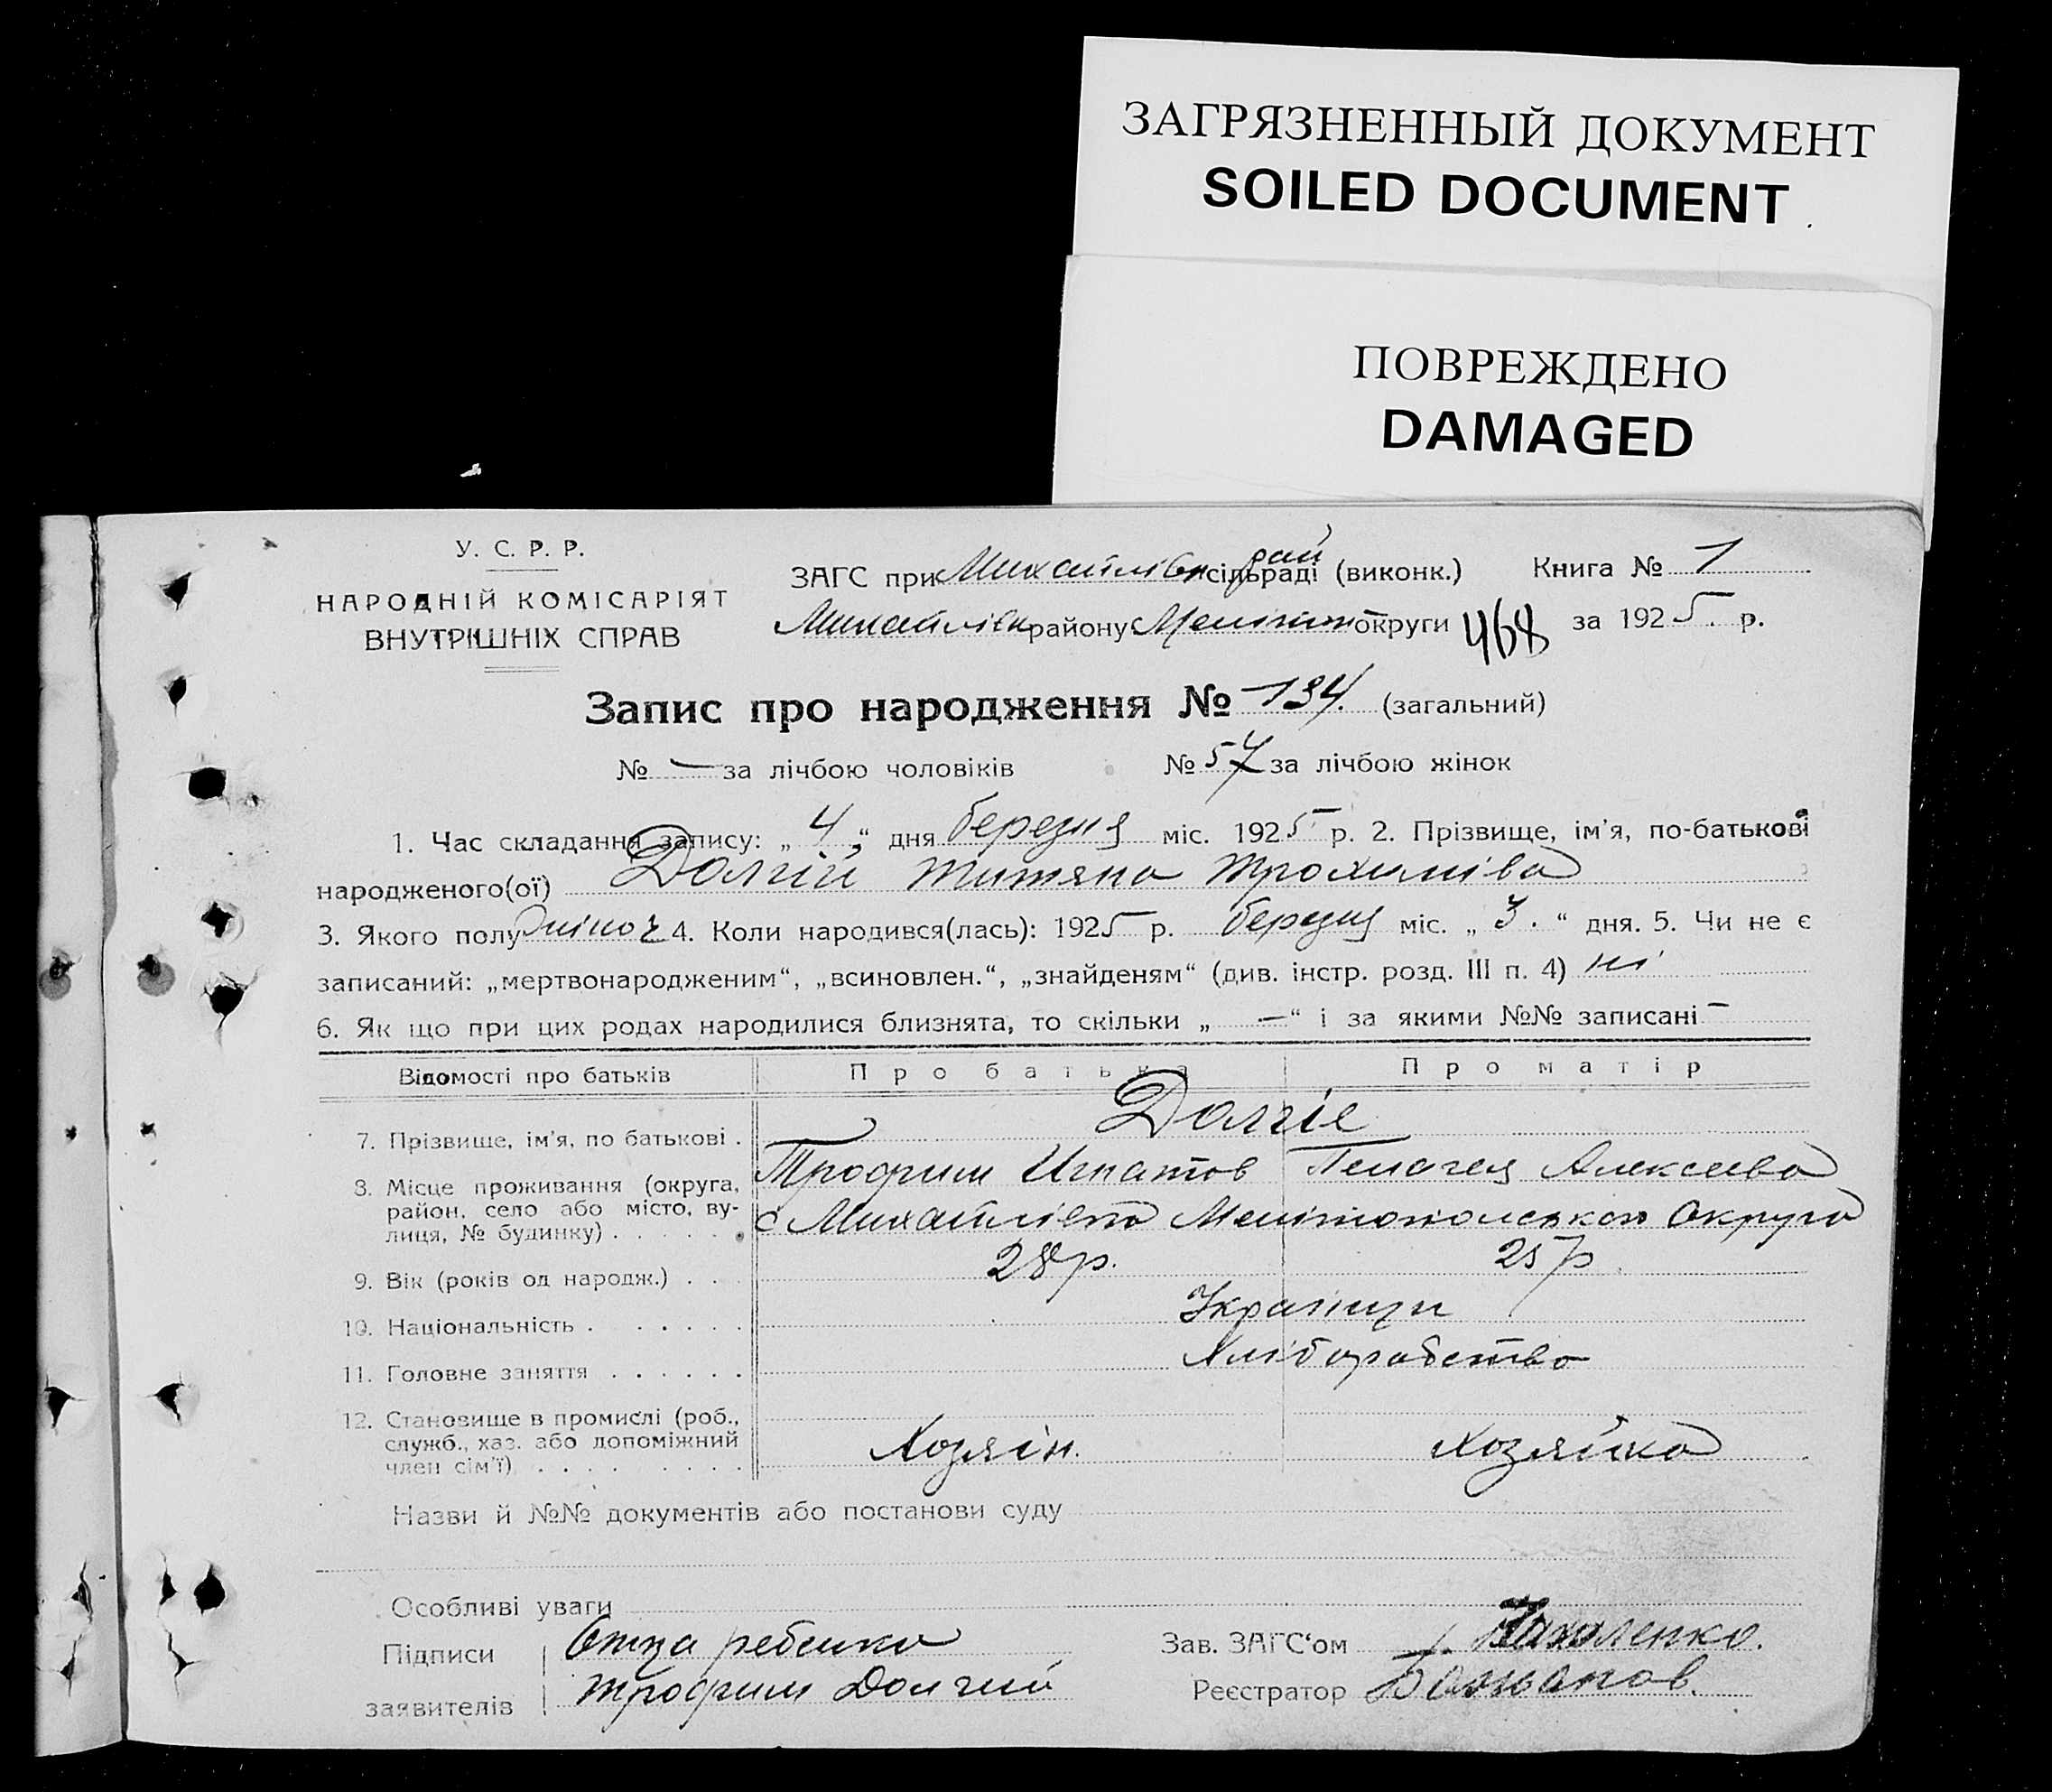 ЗАГРЯЗНЕННЫЙ ДОКУМЕНТ
SOILED DOCUMENT
ПОВРЕЖДЕНО
DAMAGED
У. С. Р. Р.
НАРОДНІЙ КОМІСАРІЯТ
ВНУТРІШНІХ СПРАВ
ЗАГС при Михайлівк рай сільраді (виконк.) Книга № 1
Михайлівк району Меліт округи 468 за 1925 р.
Запис про народження № 134. (загальний)
№ — за лічбою чоловіків № 57 за лічбою жінок
1. Час складання запису: „ 4 “ дня березня міс. 1925 р. 2. Прізвище, ім'я, по-батькові
народженого(ої) Долгій Титяна Трохиміва
3. Якого полу 4. Коли народився(лась): 1925 р. березня міс. „ 3. “ дня. 5. Чи не є
записаний: „мертвонародженим“, „всиновлен.“, „знайденям“ (див. інстр. розд. III п. 4) ні
6. Як що при цих родах народилися близнята, то скільки „ — “ і за якими №№ записані —
Відомості про батьків Про батька Про матір
7. Прізвище, ім'я, по батькові . Долгіє
Трофим Игнатов Пелагея Алексеева
8. Місце проживання (округа,
район, село або місто, ву-
лиця, № будинку) . . . . . с Михайлівка Мелітопольскои Округа
9. Вік (років од народж.) . . 28 р. 25 р
10. Національність . . . . . . Українци
11. Головне заняття . . . . . . Хліборобство
12. Становище в промислі (роб.,
служб., хаз. або допоміжний
член сім'ї) . . . . . . . . Хозяін. Хозяйка
Назви й №№ документів або постанови суду
Особливі уваги
Підписи Отца ребенка Зав. ЗАГС'ом
заявителів Трофим Долгий Реєстратор